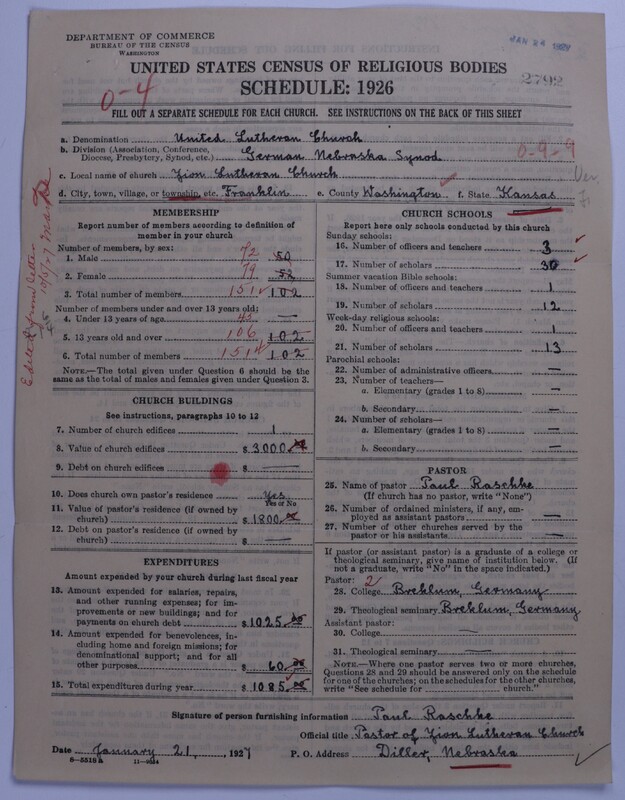 DEPARTMENT OF COMMERCE
BUREAU OF THE CENSUS
WASHINGTON
JAN 24
UNITED STATES CENSUS OF RELIGIOUS BODIES
SCHEDULE: 1926
2792
0-4
FILL OUT A SEPARATE SCHEDULE FOR EACH CHURCH. SEE INSTRUCTIONS ON THE BACK OF THIS SHEET
a. Denomination United Lutheran Church
b. Division (Association, Conference, Diocese, Presbytery, Synod, etc.) German Nebraska Synod
0-9-9
c. Local name of church Zion Lutheran Church
Ver.
d. City, town, village, or township, etc. Franklin e. County Washington f. State Kansas
MEMBERSHIP
Report number of members according to definition of
member in your church
Number of members, by sex:
1. Male 72 50
2. Female 79 52
3. Total number of members 151 102
Number of members under and over 13 years old:
4. Under 13 years of age 45 —
5. 13 years old and over 106 102
6. Total number of members 151 102
NOTE.—The total given under Question 6 should be
the same as the total of males and females given under Question 3.
CHURCH BUILDINGS
See instructions, paragraphs 10 to 12
7. Number of church edifices 1
8. Value of church edifices $ 3000.00
9. Debt on church edifices $ —
10. Does church own pastor's residence Yes
Yes or No
11. Value of pastor's residence (if owned by
church) $ 1800.00
12. Debt on pastor's residence (if owned by
church) $ —
EXPENDITURES
Amount expended by your church during last fiscal year
13. Amount expended for salaries, repairs,
and other running expenses; for im-
provements or new buildings; and for
payments on church debt $ 1025.00
14. Amount expended for benevolences, in-
cluding home and foreign missions; for
denominational support; and for all
other purposes $ 60.00
15. Total expenditures during year $ 1085.00
CHURCH SCHOOLS
Report here only schools conducted by this church
Sunday schools:
16. Number of officers and teachers 3
17. Number of scholars 30
Summer vacation Bible schools:
18. Number of officers and teachers 1
19. Number of scholars 12
Week-day religious schools:
20. Number of officers and teachers 1
21. Number of scholars 13
Parochial schools:
22. Number of administrative officers —
23. Number of teachers—
a. Elementary (grades 1 to 8) —
b. Secondary —
24. Number of scholars—
a. Elementary (grades 1 to 8) —
b. Secondary —
PASTOR
25. Name of pastor Paul Raschke
(If church has no pastor, write "None")
26. Number of ordained ministers, if any, em-
ployed as assistant pastors —
27. Number of other churches served by the
pastor or his assistants —
If pastor (or assistant pastor) is a graduate of a college or
theological seminary, give name of institution below. (If
not a graduate, write "No" in the space indicated.)
Pastor: 2
28. College Breklum, Germany
29. Theological seminary Breklum, Germany
Assistant pastor:
30. College —
31. Theological seminary —
NOTE.—Where one pastor serves two or more churches,
Questions 28 and 29 should be answered only on the schedule
for one of the churches; on the schedules for the other churches,
write "See schedule for church."
Signature of person furnishing information Paul Raschke
Official title Pastor of Zion Lutheran Church
Date January 21, 1927 P. O. Address Diller, Nebraska
8-5518a 11-9154